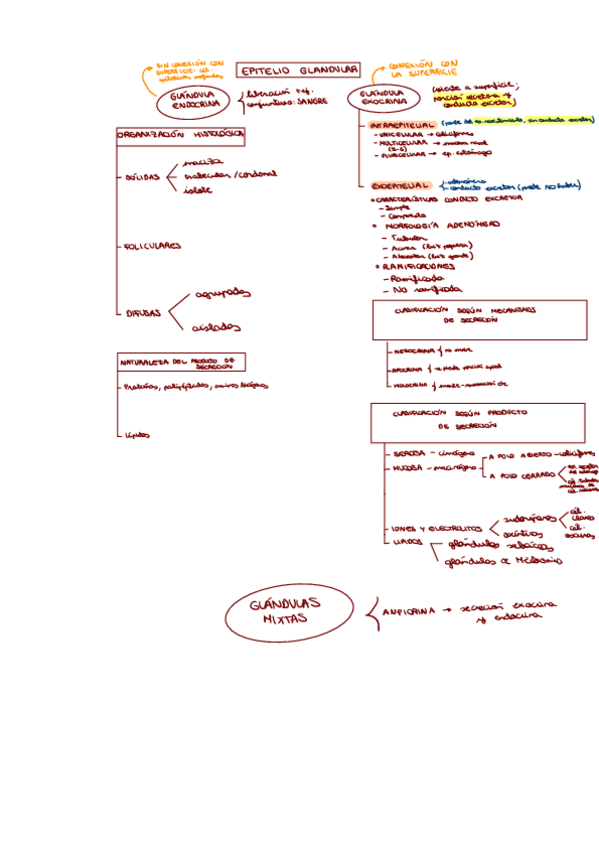 EPITELIO GLANDULAR
SIN CONEXIÓN CON
SUPERFICIE: cél.
GLÁNDULA
ENDOCRINA
liberación t. ej.
conjuntivo: SANGRE
ORGANIZACIÓN HISTOLÓGICA
SÓLIDAS
maciza
trabecular / cordonal
islote
FOLICULARES
DIFUSAS
agrupadas
aisladas
NATURALEZA DEL PRODUCTO DE
SECRECIÓN
Proteínas, polipéptidos, aminas biógenas
Lípidos
CONEXIÓN CON
LA SUPERFICIE
GLÁNDULA
EXOCRINA
superficie;
porción secretora y
conducto excretor)
INTRAEPITELIAL (parte del ep. revestimiento, sin conducto excretor)
- UNICELULAR → caliciformes
- MULTICELULAR → mucosa nasal
- PLURICELULAR → ep. estómago
EXOEPITELIAL
- adenómero
- conducto excretor (puede NO haber)
• CARACTERÍSTICAS CONDUCTO EXCRETOR
- Simple
- Compuesta
• MORFOLOGÍA ADENÓMERO
- Tubular
- Acinar (luz pequeña)
- Alveolar (luz grande)
• RAMIFICACIONES
- Ramificada
- No ramificada
CLASIFICACIÓN SEGÚN MECANISMOS
DE SECRECIÓN
- MEROCRINA { no muere
- APOCRINA { se pierde porción apical
- HOLOCRINA { muere
CLASIFICACIÓN SEGÚN PRODUCTO
DE SECRECIÓN
- SEROSA - cimógena
- MUCOSA - mucinógeno
A POLO ABIERTO - caliciformes
A POLO CERRADO
- IONES Y ELECTROLITOS
sudoríparas
cél.
claras
cél.
oscuras
oxínticas
- LÍPIDOS
glándulas sebáceas
glándulas de Meibomio
GLÁNDULAS
MIXTAS
ANFICRINA → secreción exocrina
y endocrina